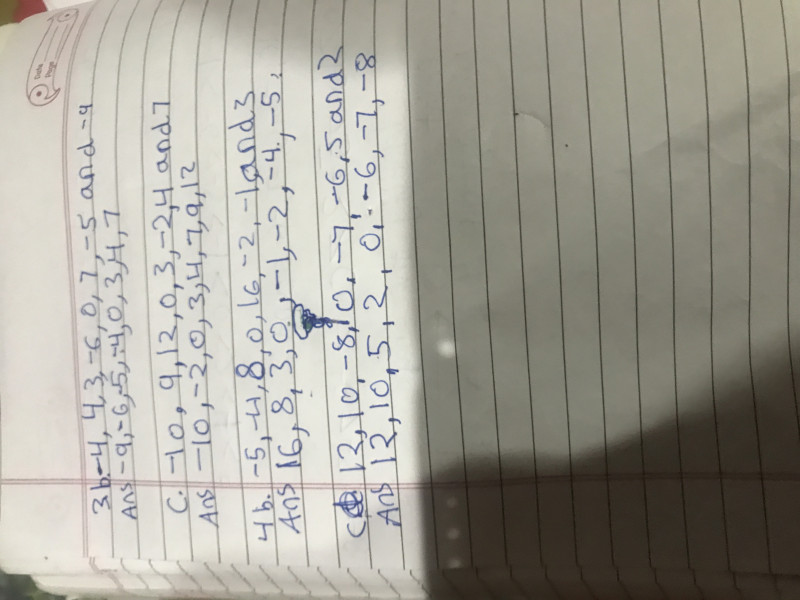 Date
Page
3b -4, 4, 3, -6, 0, 7, -5 and -9
Ans -9, -6, -5, -4, 0, 3, 4, 7
C. -10, 9, 12, 0, 3, -2, 4 and 7
Ans -10, -2, 0, 3, 4, 7, 9, 12
4b. -5, -4, 8, 0, 16, -2, -1, and 3
Ans 16, 8, 3, 0, -1, -2, -4, -5.
C 12, 10, -8, 0, -7, -6, 5 and 2
Ans 12, 10, 5, 2, 0, -6, -7, -8